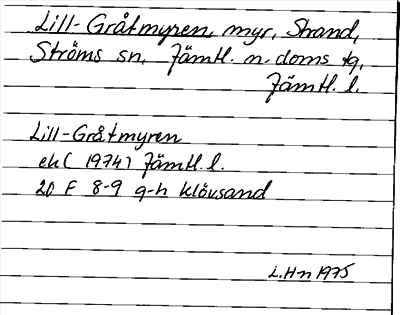 Lill-Gråtmyren, myr, Strand,
Ströms sn, Jämtl. n. doms tg,
Jämtl. l.
Lill-Gråtmyren
ek ( 1974) Jämtl. l.
20 F 8-9 g-h Klövsand
L.Hn 1975